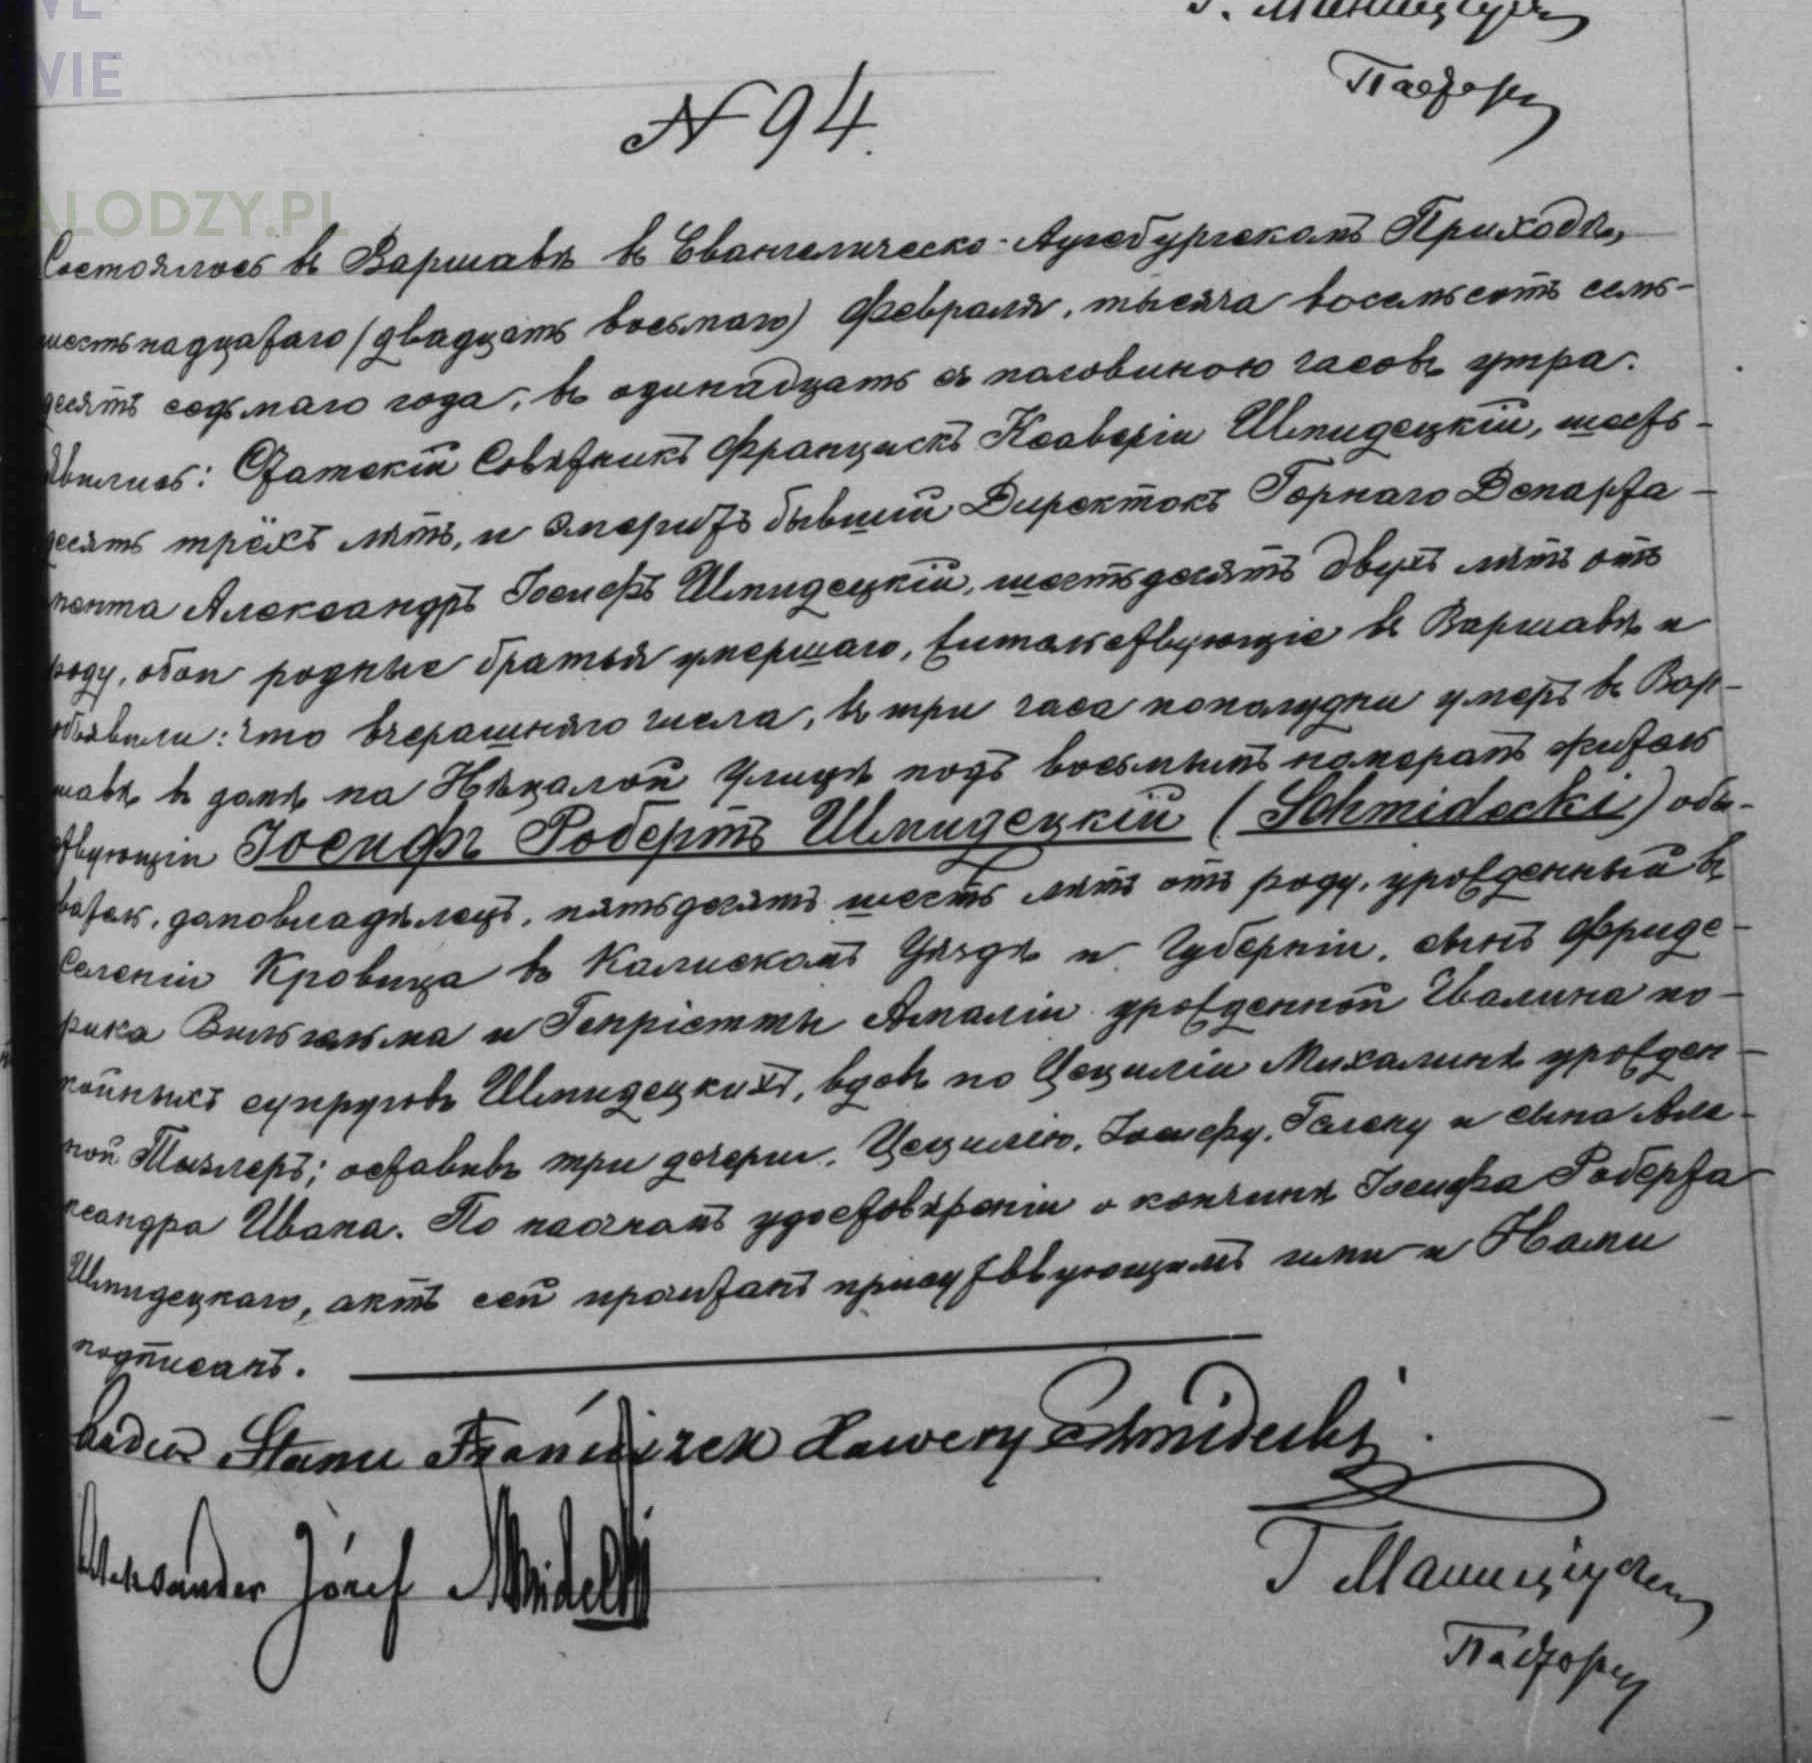 WIE
WIE
EALODZY.PL
Пасторъ
N 94.
Состоялось въ Варшавѣ въ Евангелическо-Аугсбургскомъ Приходѣ,
шестьнадцатаго (двадцать восьмаго) Февраля, тысяча восемьсотъ семь-
десятъ седьмаго года, въ одинадцать съ половиною часовъ утра.
Явились: Статскій Совѣтникъ Францискъ Ксаверій Шмидецкій, шесть-
десятъ трёхъ лѣтъ, и эмеритъ бывшій Директоръ Горнаго Департа-
мента Александръ Іосифъ Шмидецкій, шестьдесятъ двухъ лѣтъ отъ
роду, обои родные братья умершаго, жительствующіе въ Варшавѣ и
объявили: что вчерашняго числа, въ три часа пополудни умеръ въ Вар-
шавѣ въ домѣ на Нѣцалой Улицѣ подъ восьмымъ номеромъ житель
ствующій Іосифъ Робертъ Шмидецкій (Schmidecki) обы-
ватель, домовладѣлецъ, пятьдесятъ шесть лѣтъ отъ роду, урожденный въ
Селеніи Кровица въ Калискомъ Уѣздѣ и Губерніи, сынъ Фриде-
рика Вильгельма и Генріетты Амаліи урожденной Ивалина по-
койныхъ супруговъ Шмидецкихъ, вдовъ по Цециліи Михалинѣ урожден-
ной Тызлеръ; оставивъ три дочери, Цецилію, Іосифу, Гелену и сына Але-
ксандра Ивана. По наочномъ удостовѣреніи о кончинѣ Іосифа Роберта
Шмидецкаго, актъ сей прочитанъ присутствующимъ ими и Нами
подписанъ.
Radca Stanu Franciszek Xawery Schmidecki
Aleksander Józef Schmidecki
Пасторъ